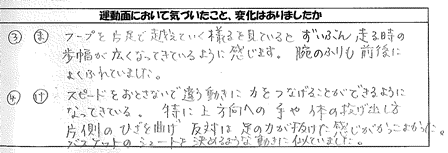 運動面において気づいたこと、変化はありましたか
③ ㋮ フープを片足で越えていく様子を見ていると ずいぶん 走る時の
歩幅が広くなってきているように感じます。腕のふりも前後に
よくふれていました。
④ ㋘ スピードをおとさないで違う動きに力をつなげることができるように
なってきている。特に上方向への手や体の投げ出し方
片側のひざを曲げ 反対は足の力が抜けた感じがかっこよかった。
バスケットのシュートを決めるような動きに似ていました。